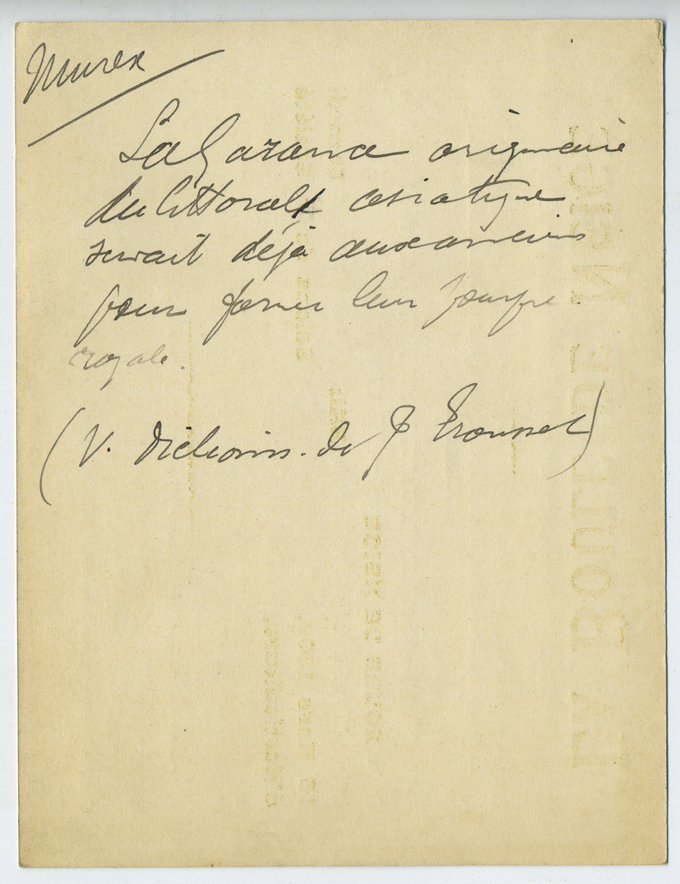 Murex
La Garance originaire
du littoral asiatique
servait déjà aux anciens
pour former leur pourpre
royale.
(V. Dictionn. de J Trousset)
LA BOULE DE NEIGE